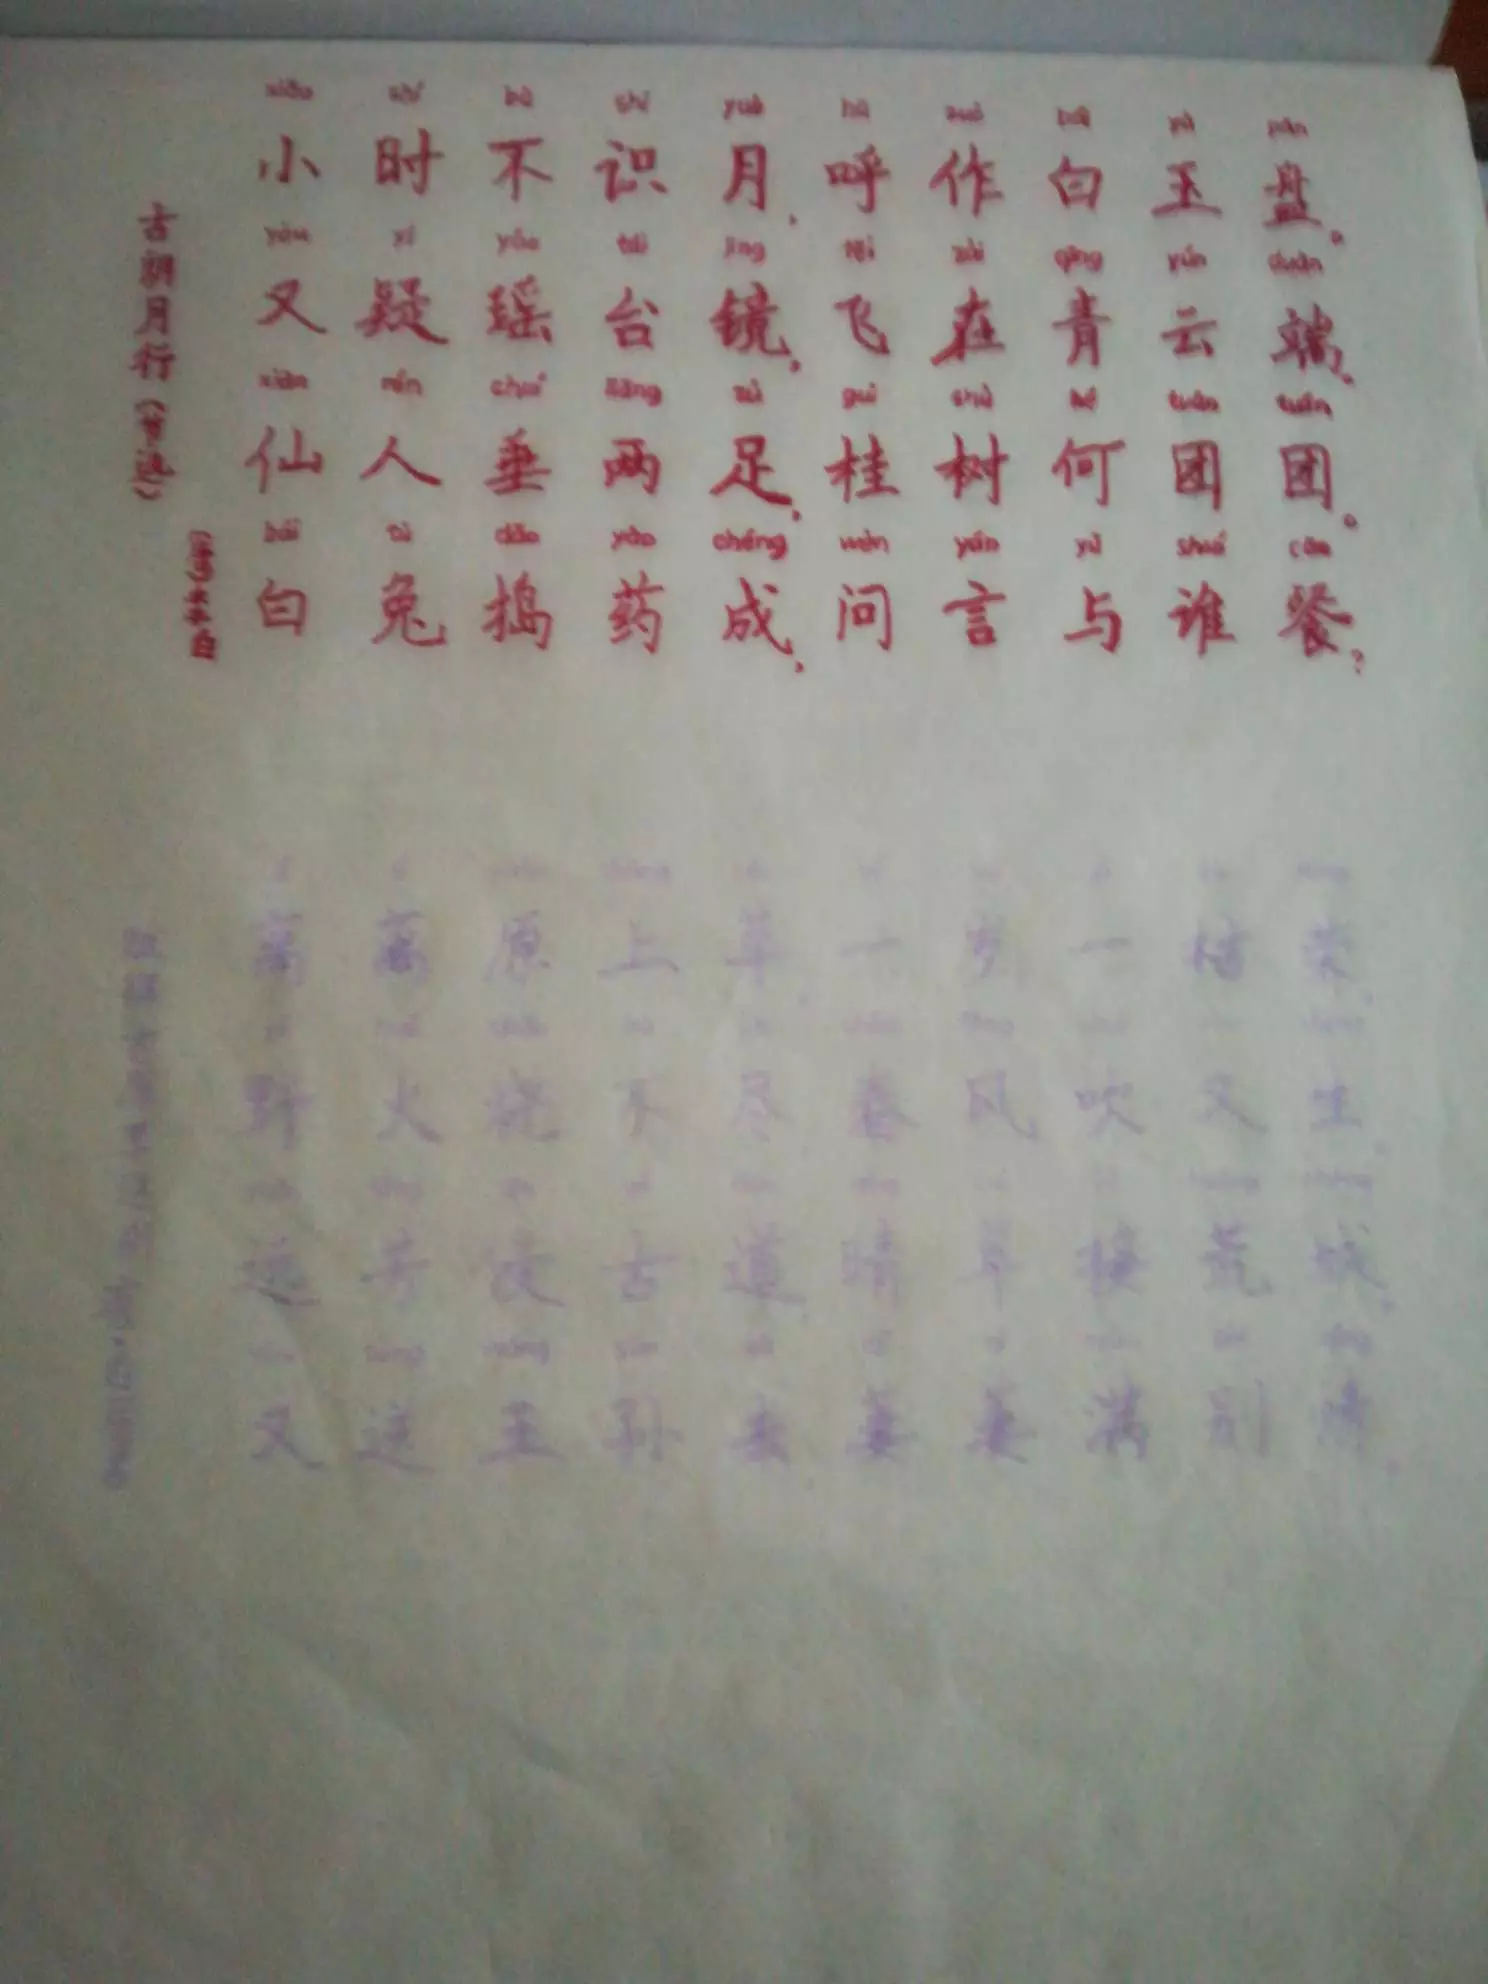 古朗月行（节选）
（唐）李白
xiǎo shí bù shí yuè hū zuò bái yù pán
小时不识月，呼作白玉盘。
yòu yí yáo tái jìng fēi zài qīng yún duān
又疑瑶台镜，飞在青云端。
xiān rén chuí liǎng zú guì shù hé tuán tuán
仙人垂两足，桂树何团团。
bái tù dǎo yào chéng wèn yán yǔ shuí cān
白兔捣药成，问言与谁餐？
离离原上草，一岁一枯荣。
野火烧不尽，春风吹又生。
远芳侵古道，晴草接荒城。
又送王孙去，萋萋满别情。